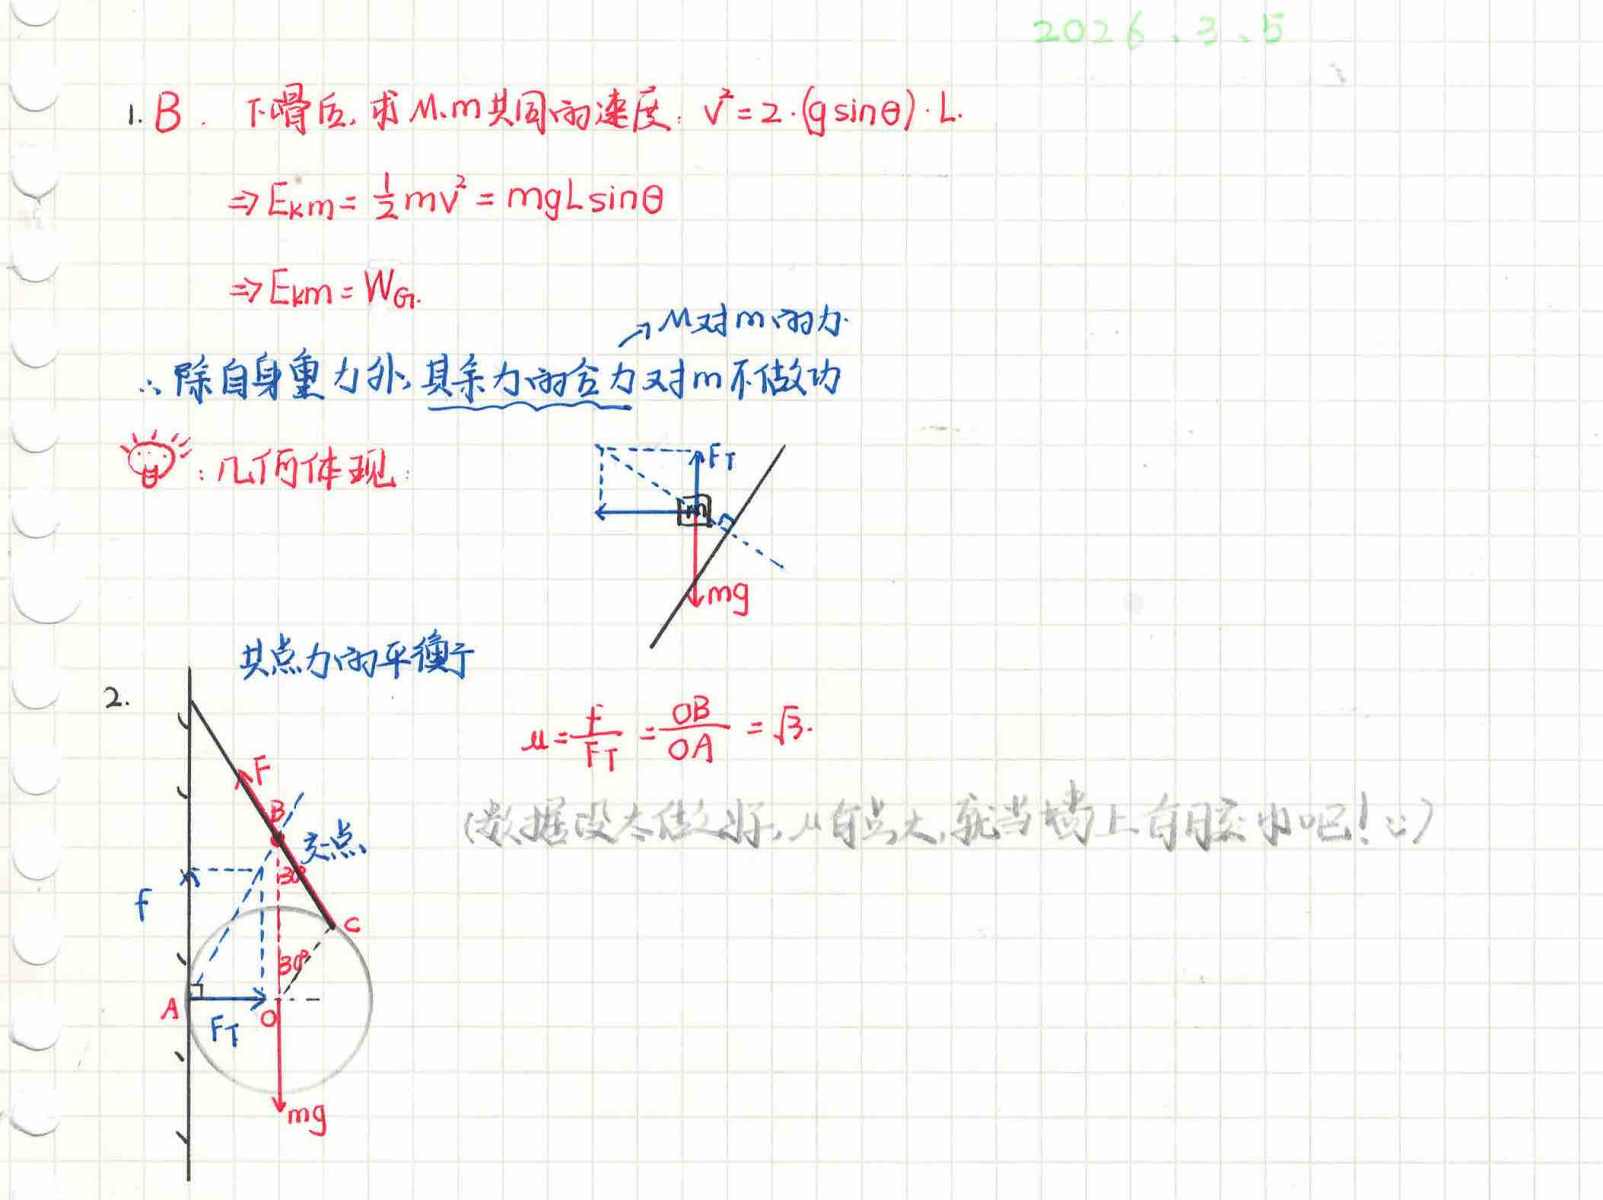 2026.3.5
1. B. 下滑后,求M、m共同的速度: v²=2·(gsinθ)·L.
⇒Ekm=½mv²=mgLsinθ
⇒Ekm=WG.
→M对m的力.
∴除自身重力外,其余力的合力对m不做功
:几何体现:
FT
m
mg
共点力的平衡
2.
μ=f/FT=OB/OA=√3.
(数据没太做好,μ有点大,就当墙上有胶水吧! :))
F
B
交点
30°
f
C
30°
A
O
FT
mg